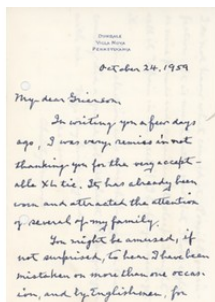 DUNDALE
VILLA NOVA
PENNSYLVANIA
October 24, 1959
My dear Grierson,
In writing you a few days
ago, I was very remiss in not
thanking you for the very accept-
able XL tie. It has already been
worn and attracted the attention
of several of my family.
You might be amused, if
not surprised, to hear I have been
mistaken on more than one occas-
ion, and by Englishmen, for